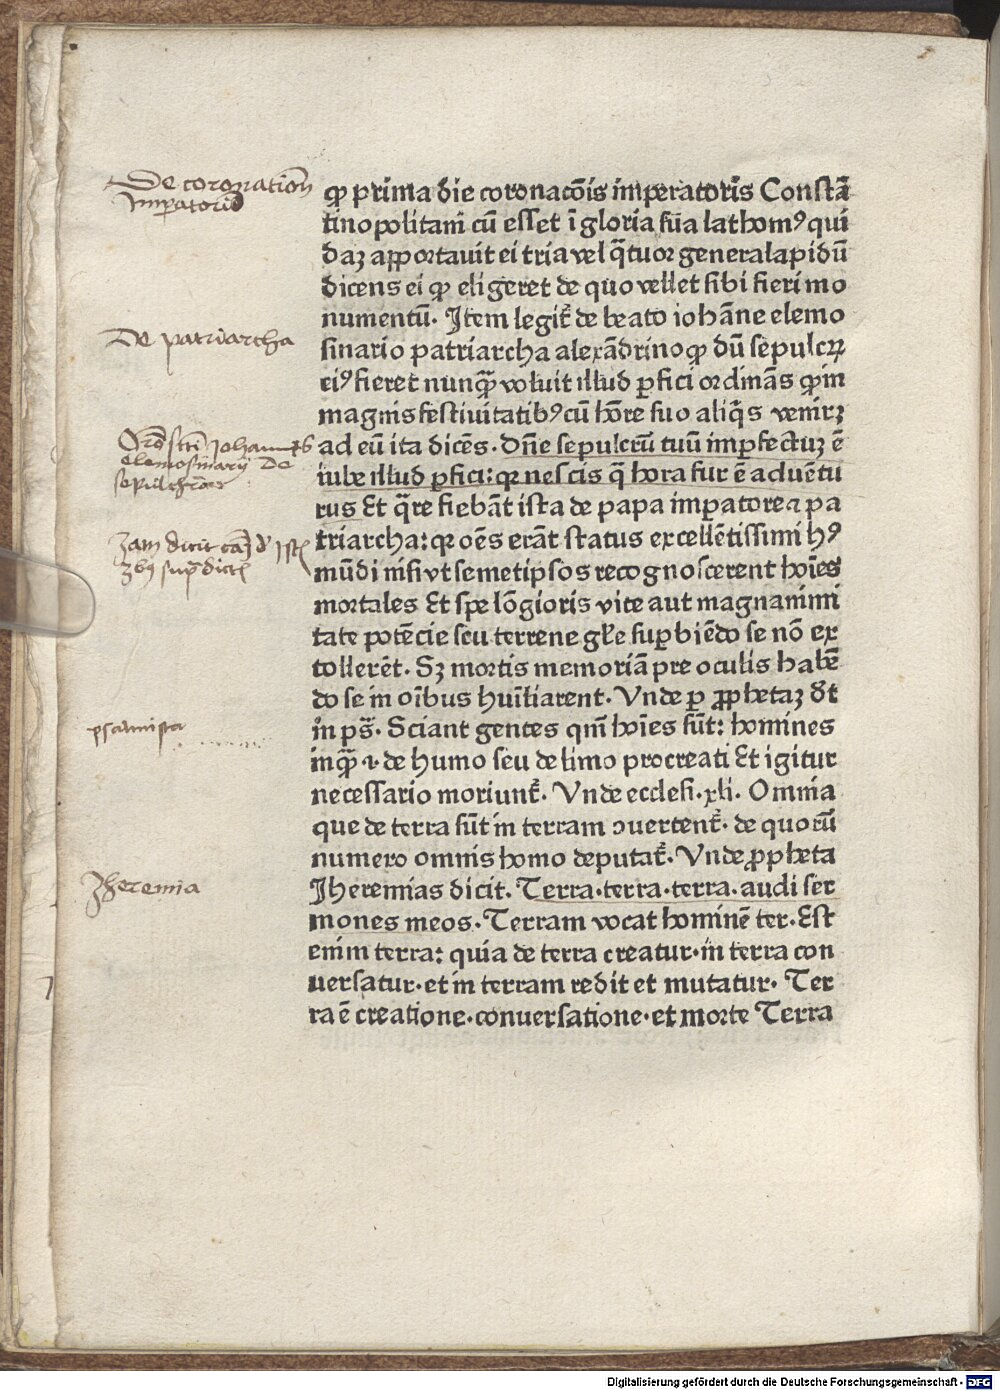 De coronation̄
Imꝑatoris
ꝙ prima die coronacōis imperatoris Constā
tinopolitani cū esset ī gloria sua lathomꝰ qui
daʒ apportauit ei tria vel q̄tuor genera lapidū
dicens ei ꝙ eligeret de quo vellet sibi fieri mo
numentū. Item legit̄ de beato iohāne elemo
De patriarcha
sinario patriarcha alexādrino ꝙ dū sepulcꝝ
eiꝰ fieret nunq̄ȝ voluit illud ꝑfici ordinās ꝙ in
magnis festiuitatibꝰ cū hōre suo aliq̄s veniret
Johannis
elemosinarij de
ad eū ita dicēs. Dn̄e sepulcrū tuū imꝑfectuȝ ē
iube illud ꝑfici: qꝛ nescis q̄ hora fur ē aduētu
rus Et q̄re fiebāt ista de papa imꝑatore ⁊ pa
triarcha: qꝛ oēs erāt status excellētissimi hꝰ
mūdi nisi vt semetipsos recognoscerent hoīes
mortales Et spe lōgioris vite aut magnanimi
tate potēcie seu terrene gl̄e suꝑbiēdo se nō ex
tollerēt. Sȝ mortis memoriā pre oculis habē
do se in oībus huīliarent. Vnde ꝑ ꝓphetaȝ dt̄
psalmista
in ps̄. Sciant gentes qm̄ hoīes sūt: homines
inq̄ȝ .i. de humo seu de limo procreati Et igitur
necessario moriunt̄. Vnde ecclesi. xli. Omnia
que de terra sūt in terram ↄuertent̄. de quorū
numero omnis homo deputat̄. Vnde ꝓpheta
Jheremia
Jheremias dicit. Terra. terra. terra. audi ser
mones meos. Terram vocat hominē ter. Est
enim terra: quia de terra creatur. in terra con
uersatur. et in terram redit et mutatur. Ter
ra ē creatione. conuersatione. et morte Terra
Digitalisierung gefördert durch die Deutsche Forschungsgemeinschaft - DFG